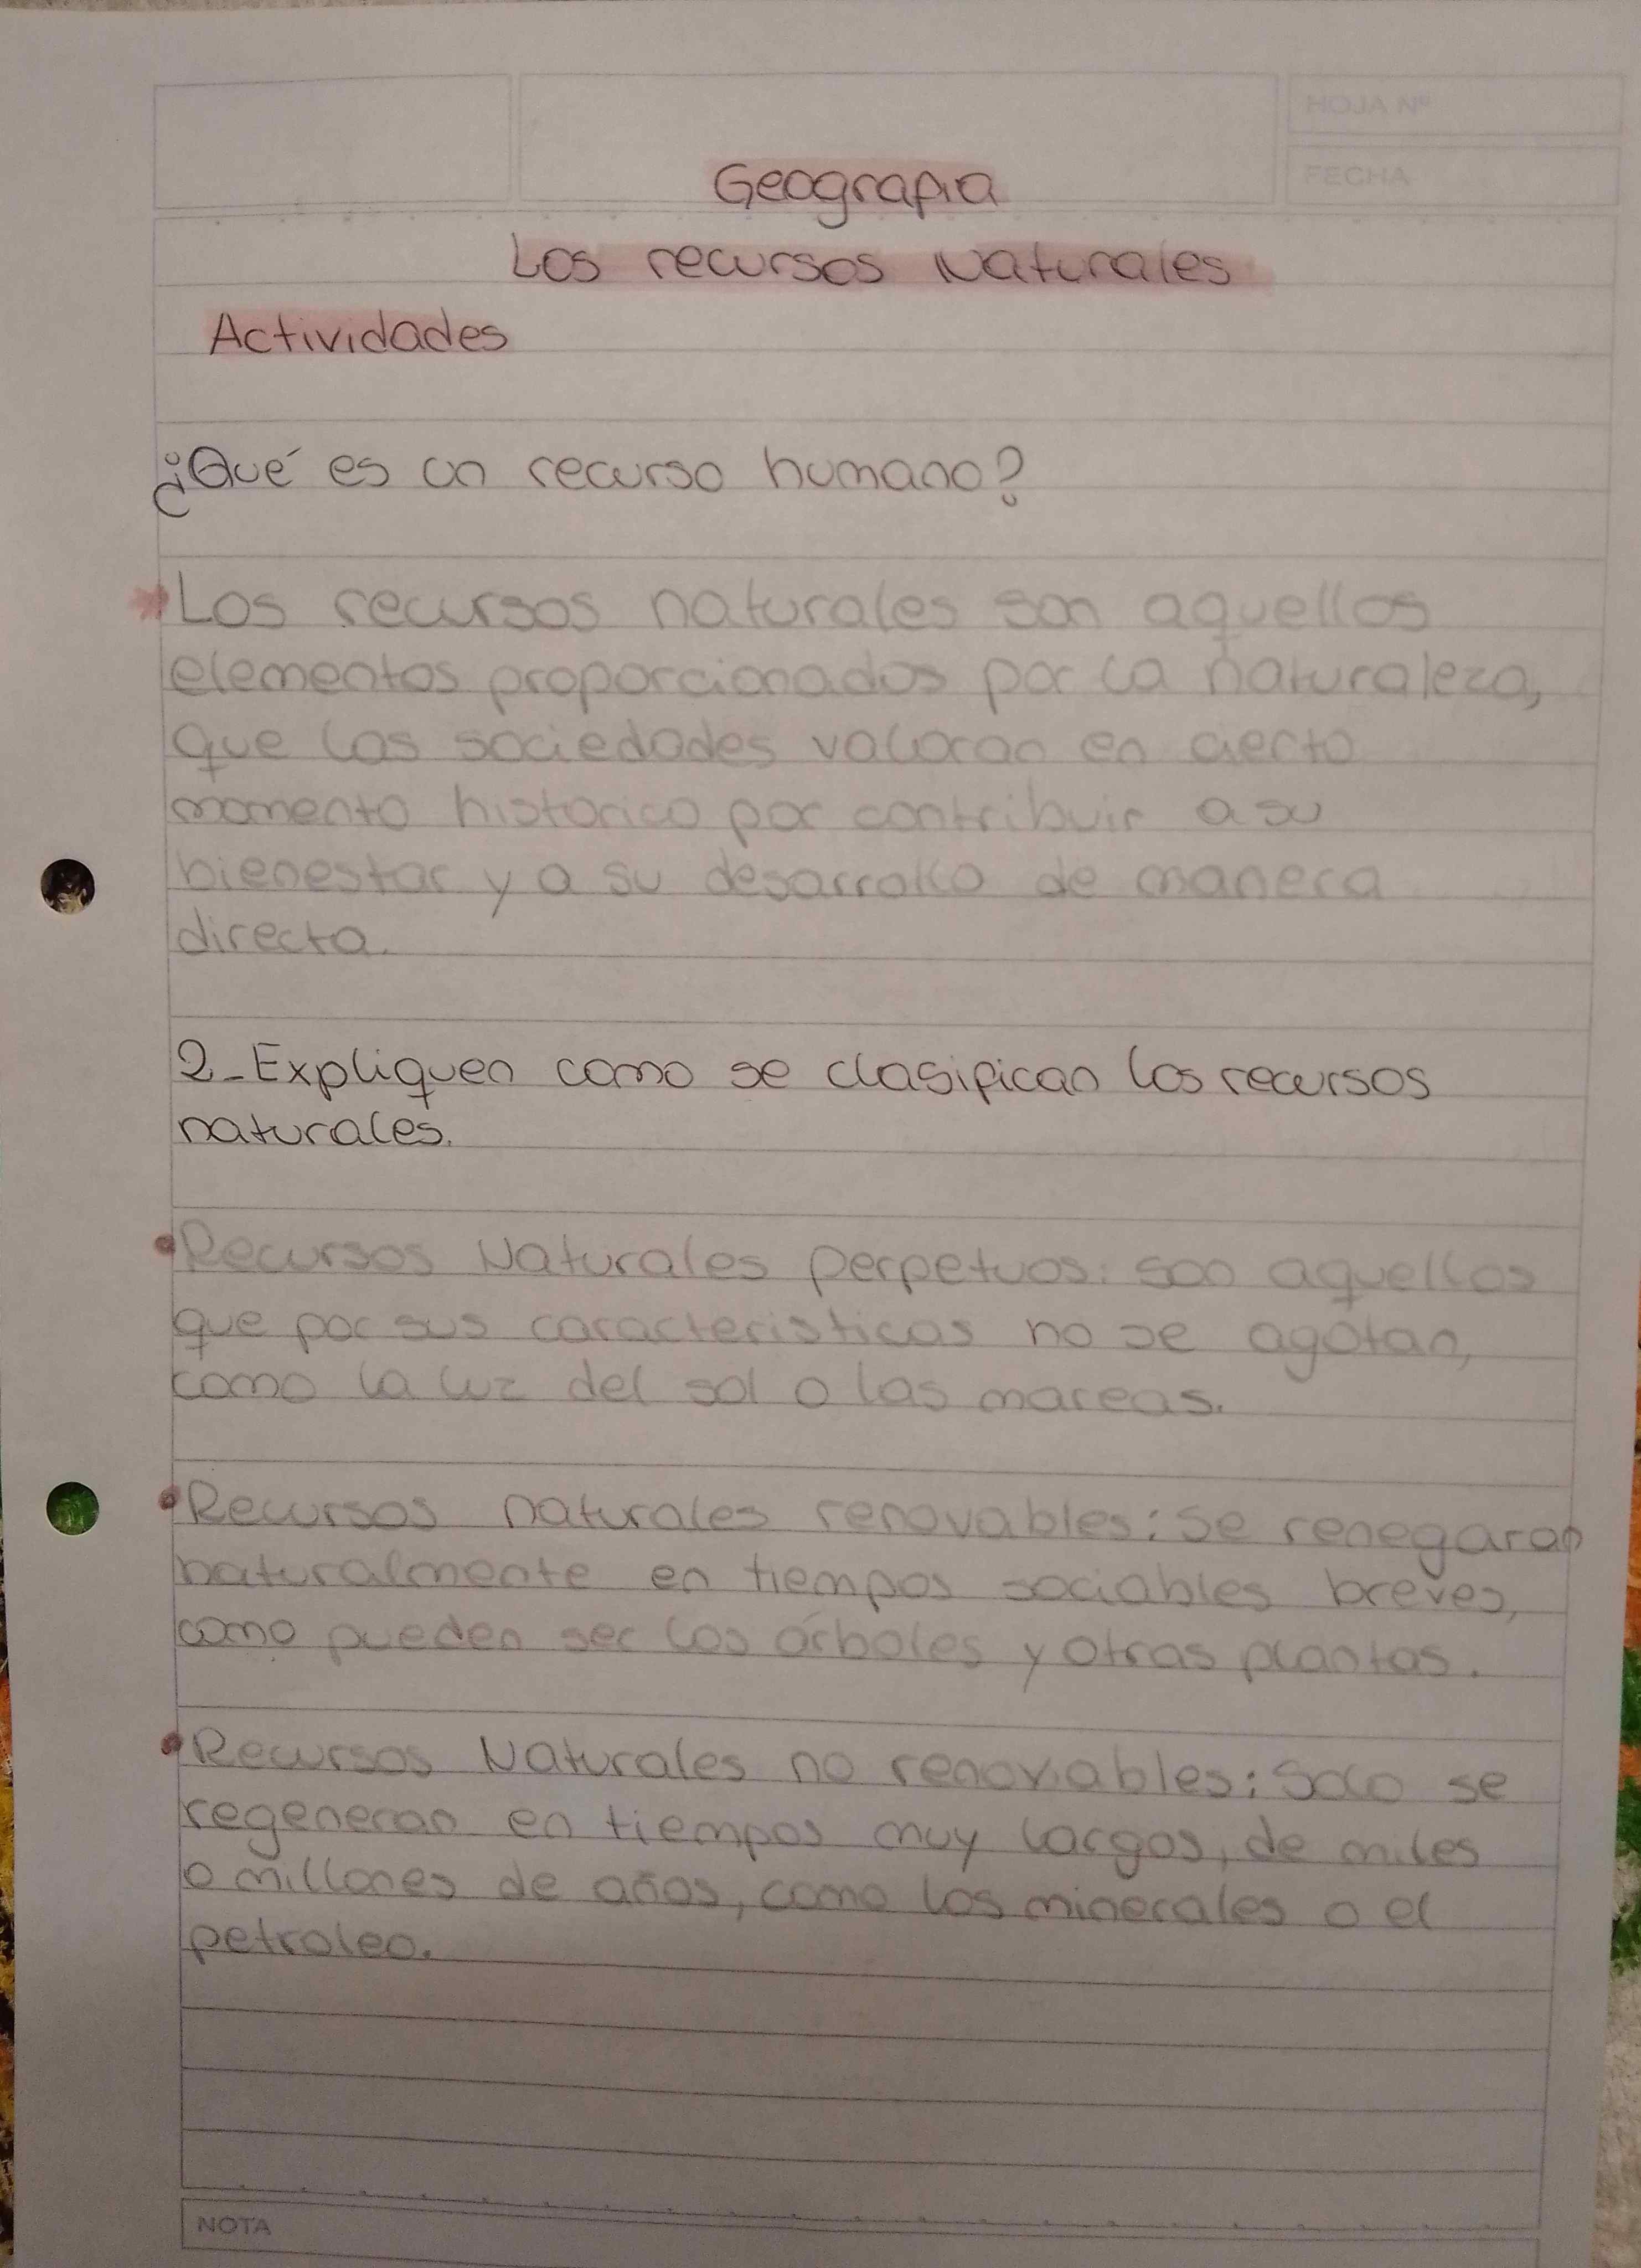 HOJA Nº
FECHA
Geografia
Los recursos Naturales
Actividades
¿Qué es un recurso humano?
Los recursos naturales son aquellos
elementos proporcionados por la naturaleza,
que las sociedades valoran en cierto
momento historico por contribuir a su
bienestar y a su desarrollo de manera
directa.
2-Expliquen como se clasifican los recursos
naturales.
Recursos Naturales perpetuos: son aquellos
que por sus caracteristicas no se agotan,
como la luz del sol o las mareas.
Recursos naturales renovables: Se renegaran
naturalmente en tiempos sociables breves,
como pueden ser los árboles y otras plantas.
Recursos Naturales no renovables: Solo se
regeneran en tiempos muy largos, de miles
o millones de años, como los minerales o el
petroleo.
NOTA